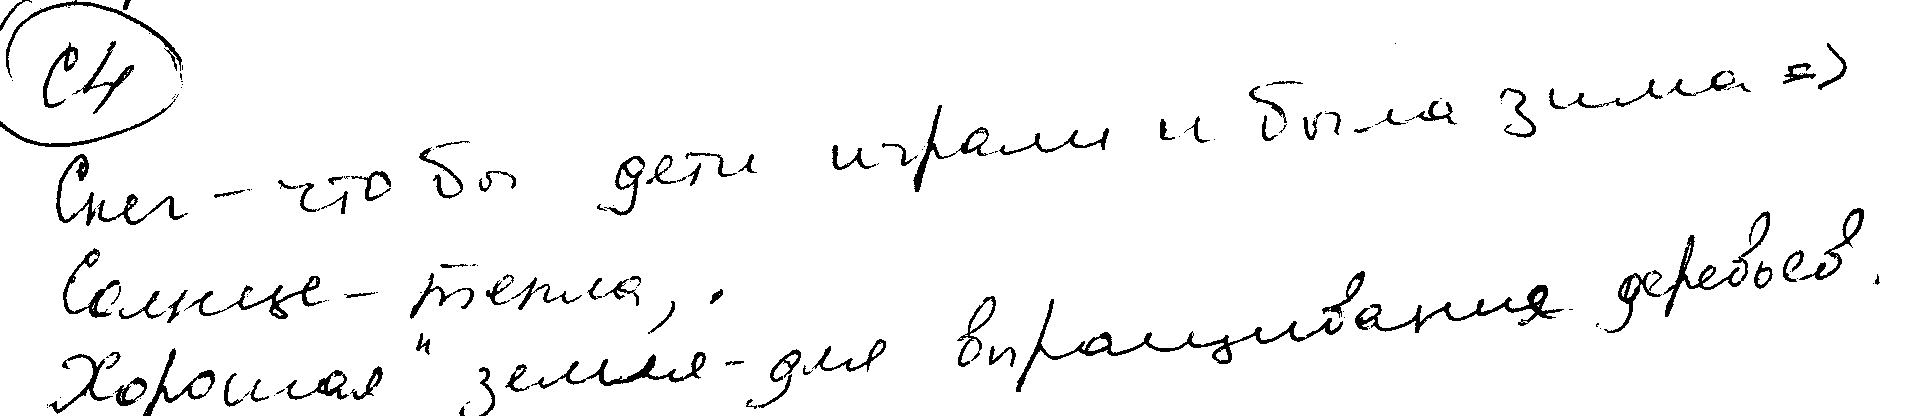 С4
Снег - что бы дети играли и была зима =>
Солнце - тепла, .
Хорошая " земля - для выращивания деревьев.